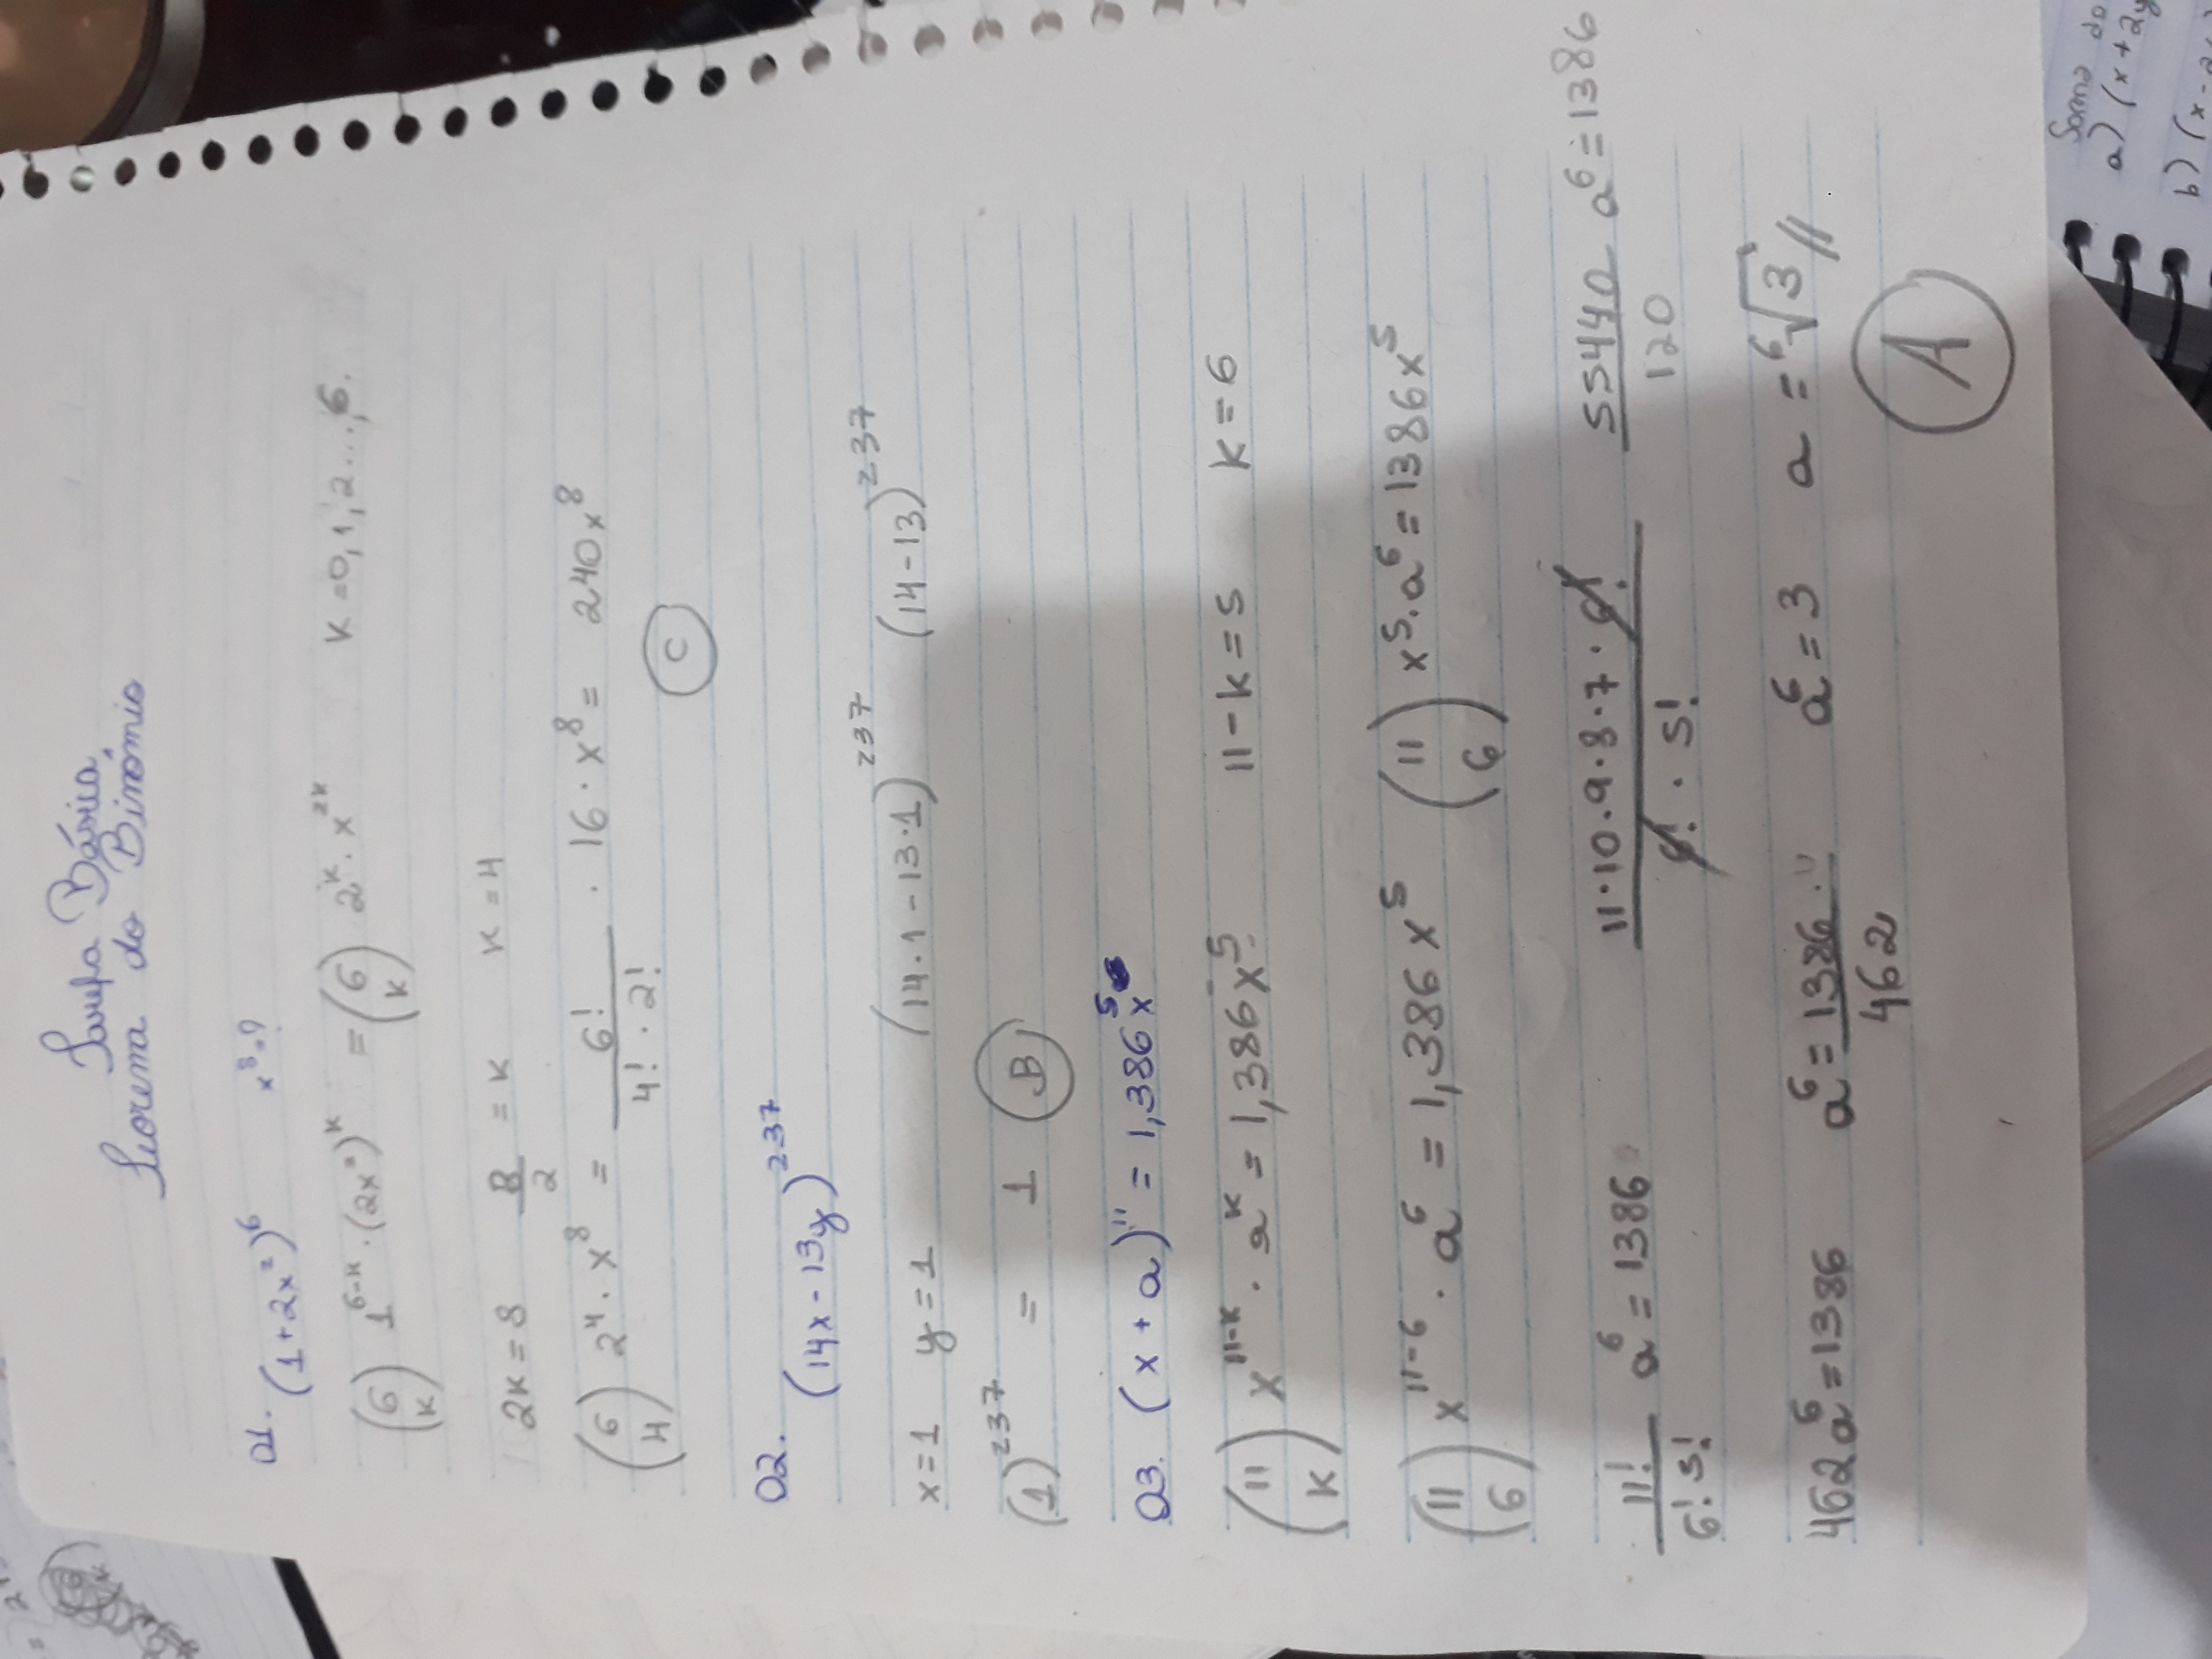 Tarefa Básica
Teorema do Binômio
01. (1+2x²)⁶ x⁸=?
(6 k) 1⁶⁻ᵏ · (2x²)ᵏ = (6 k) 2ᵏ · x²ᵏ k=0,1,2...,6.
2k=8 8/2 = k k=4
(6 4) 2⁴ · x⁸ = 6!/(4! · 2!) · 16 · x⁸ = 240x⁸
C
02. (14x - 13y)²³⁷
x=1 y=1 (14·1 - 13·1)²³⁷ (14-13)²³⁷
(1)²³⁷ = 1 B
03. (x + a)¹¹ = 1,386x⁵
(11 k) x¹¹⁻ᵏ · aᵏ = 1,386x⁵ 11-k=5 k=6
(11 6) x¹¹⁻⁶ · a⁶ = 1,386x⁵ (11 6) x⁵·a⁶ = 1386x⁵
11!/(6! 5!) a⁶ = 1386 11·10·9·8·7·6!/(6! · 5!) 55440/120 a⁶ = 1386
462a⁶ = 1386 a⁶ = 1386/462 a⁶ = 3 a = ⁶√3 //
A
Soma do
a) (x+2y
b) (x-